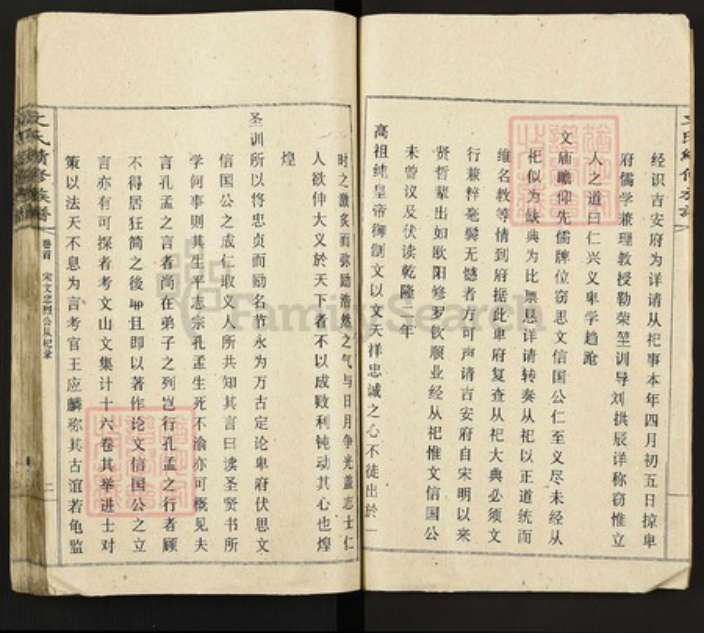 经识吉安府为详请从祀事本年四月初五日掠卑
府儒学兼理教授勒荣堃训导刘拱辰详称窃惟立
人之道曰仁兴义卑学趋跄
文庙瞻仰先儒牌位窃思文信国公仁至义尽未经从
祀似为缺典为比禀恳详请转奏从祀以正道统而
维名教等情到府据此卑府复查从祀大典必须文
行兼粹毫鬓无憾者方可声请吉安府自宋明以来
贤哲辈出如欧阳修罗钦顺业经从祀惟文信国公
未曾议及伏读乾隆 年
高祖纯皇帝御制文以文天祥忠诚之心不徒出於一
时之激炙而弥励浩然之气与日月争光盖志士仁
人欲伸大义於天下者不以成败利钝动其心也煌
煌
圣训所以将忠贞而励名节永为万古定论卑府伏思文
信国公之成仁取义人所共知其言曰读圣贤书所
学何事则其生平志宗孔孟生死不渝亦可概见夫
言孔孟之言者尚在弟子之列岂行孔孟之行者顾
不得居狂简之後 且即以著作论文信国公之立
言亦有可探者考文山文集计十六卷其举进士对
策以法天不息为言考官王应麟称其古谊若龟监
文氏续修族谱
卷首 宋文忠烈公从祀录
二
FamilySearch